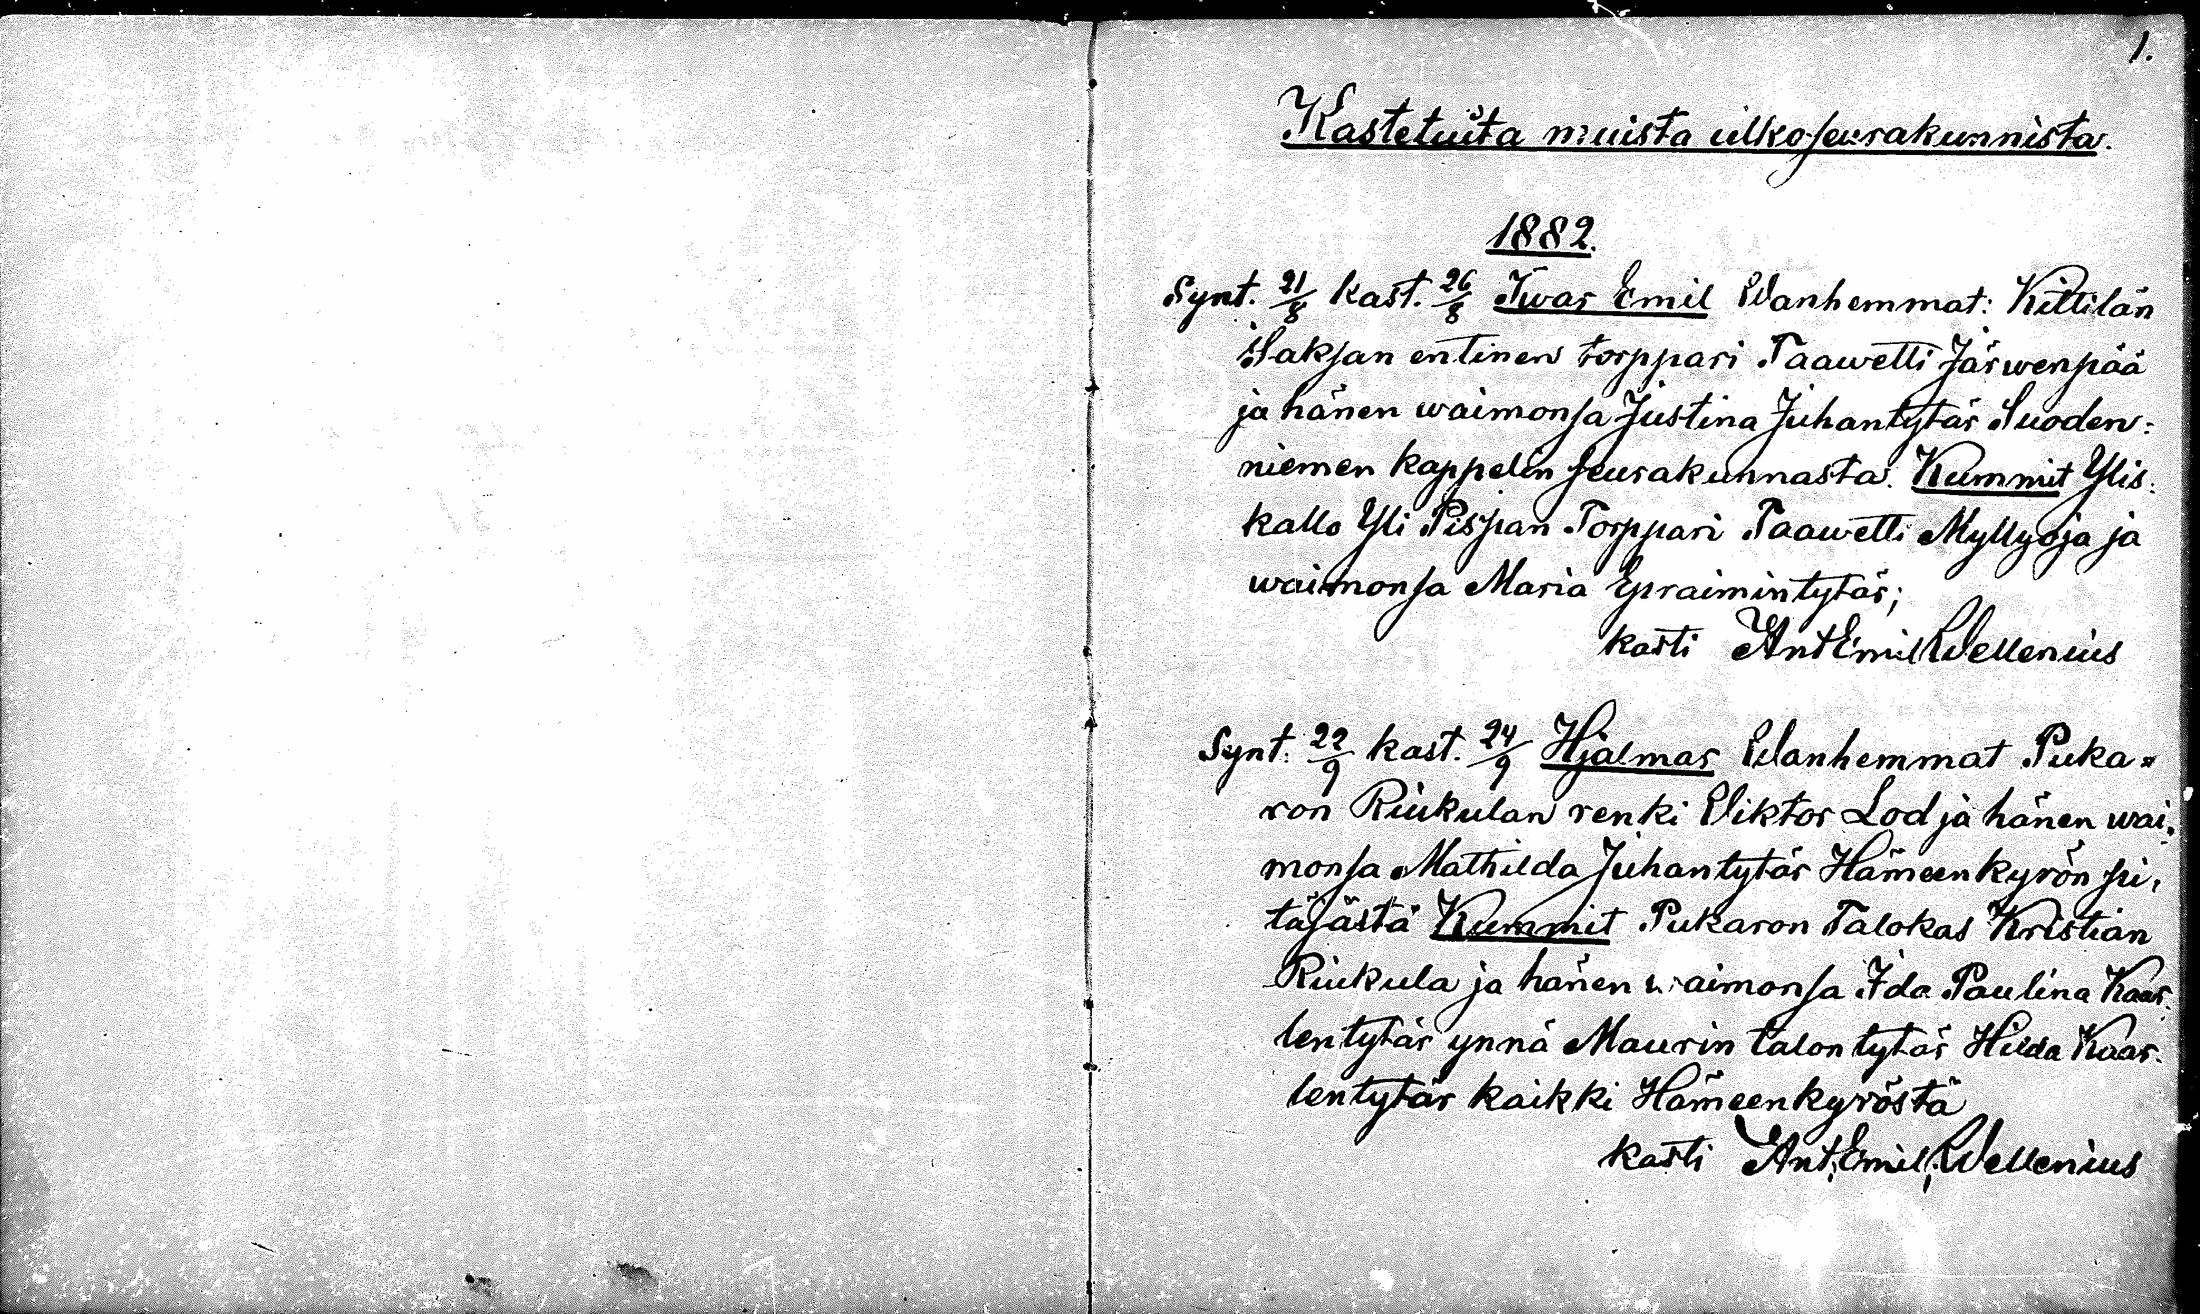 1.
Kastetuita muista ulkoseurakunnista.
1882.
Synt. 21/8 kast. 26/8 Iwar Emil Wanhemmat: Kittilän
Saksan entinen torppari Taawetti Järwenpää
ja hänen waimonsa Justina Juhantytär Suoden=
niemen kappelin seurakunnasta. Kummit Ylis=
kallo Yli Pispan Torppari Taawetti Myllyoja ja
waimonsa Maria Epraimintytär;
kasti Ant Emil Wellenius
Synt. 22/9 kast. 24/9 Hjalmar Wanhemmat Puka=
ron Riukulan renki Viktor Lod ja hänen wai=
monsa Mathilda Juhantytär Hämeenkyrön pi=
täjästä Kummit Pukaron Talokas Kristian
Riukula ja hänen waimonsa Ida Paulina Kaar=
lentytär ynnä Maurin talon tytär Hilda Kaar=
lentytär kaikki Hämeenkyröstä
kasti Ant. Emil. Wellenius